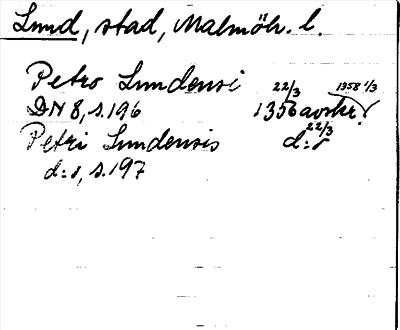 Lund, stad, Malmöh. l.
Petro Lundensi 22/3 1358 1/3
DN 8, s. 196 1356 avskr.
Petri Lundensis 22/3
d:o, s. 197 d:o